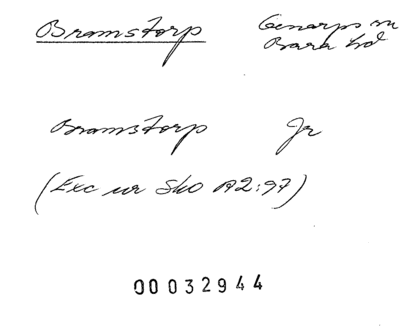 Bramstorp Genarps sn
Bara hd
Bramstorp Jr
(Exc ur SkO A2:97)
00032944